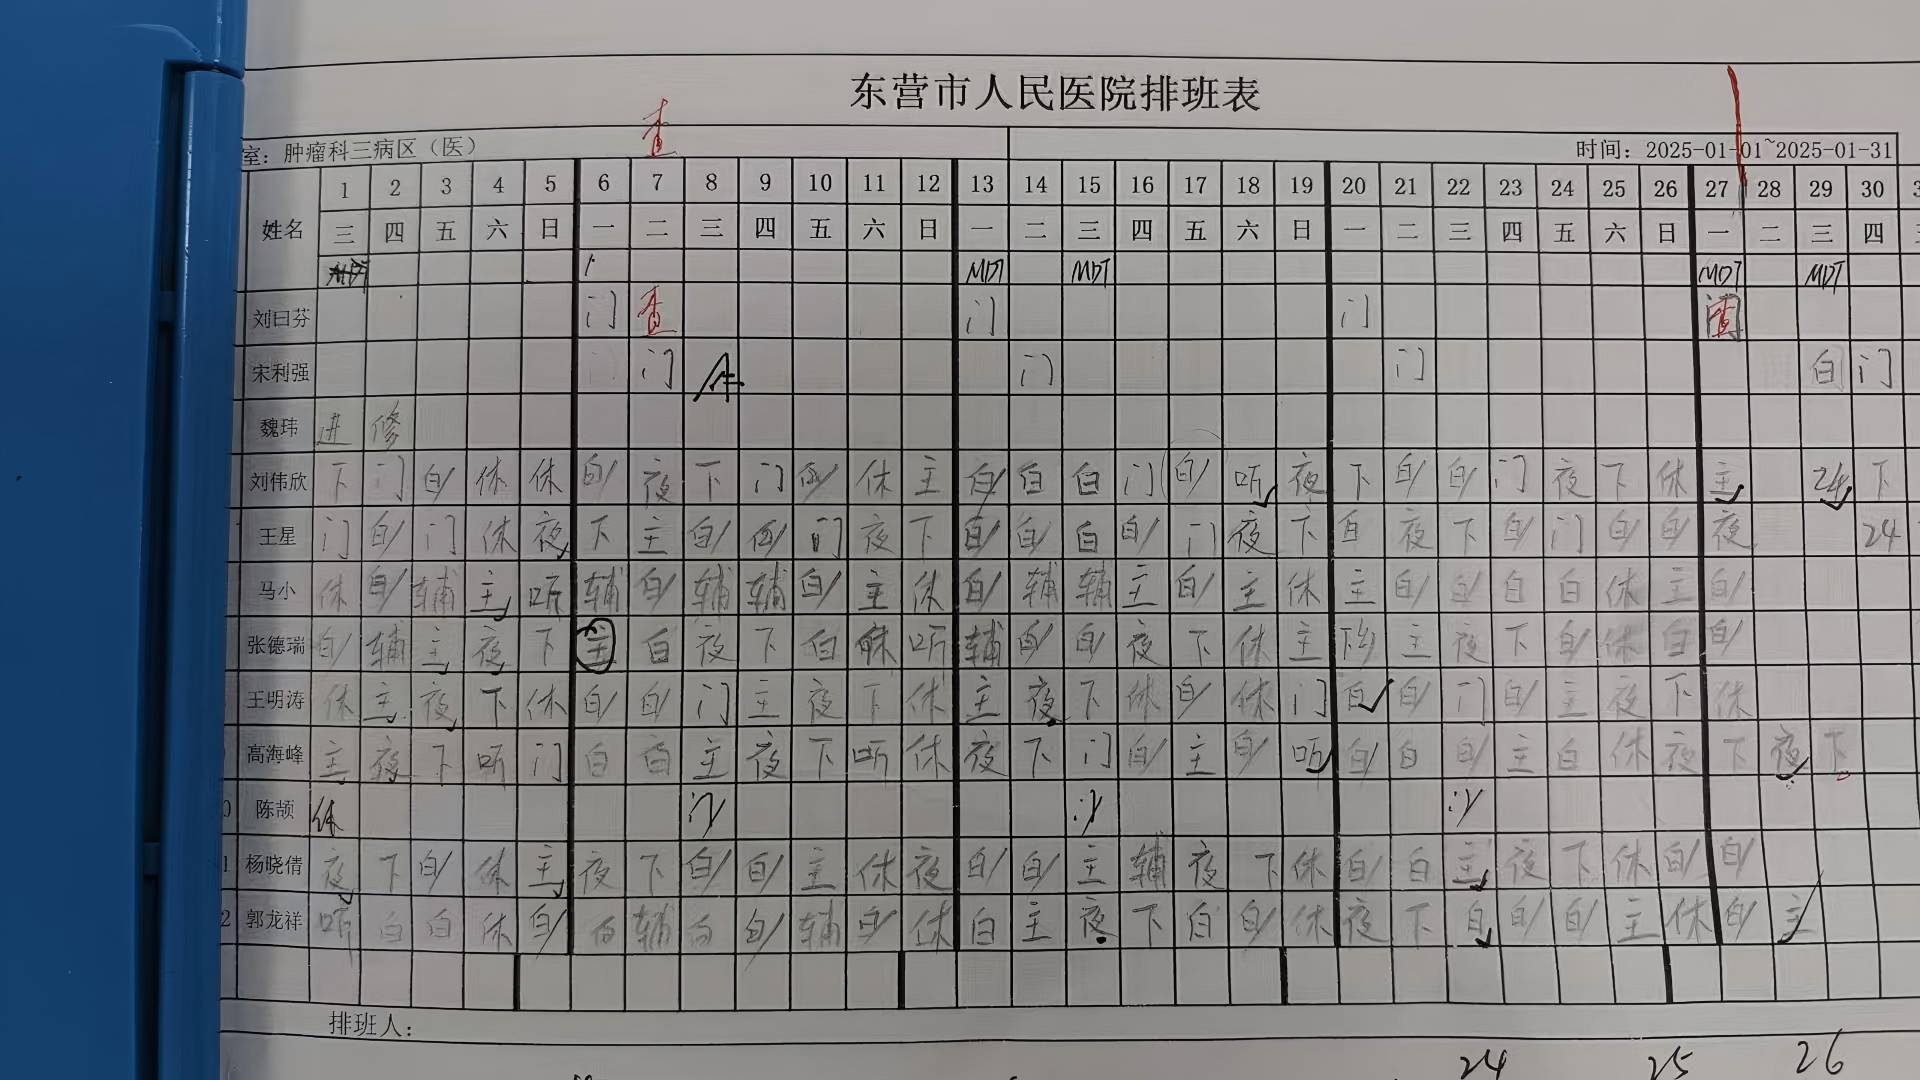 东营市人民医院排班表
查
室: 肿瘤科三病区（医） 时间: 2025-01-01~2025-01-31
姓名 1 2 3 4 5 6 7 8 9 10 11 12 13 14 15 16 17 18 19 20 21 22 23 24 25 26 27 28 29 30
三 四 五 六 日 一 二 三 四 五 六 日 一 二 三 四 五 六 日 一 二 三 四 五 六 日 一 二 三 四
MDT MDT MDT MDT
刘曰芬 门 查 门 门 查
宋利强 门 门 门 白 门
魏玮 进 修
刘伟欣 下 门 白 休 休 白 夜 下 门 休 主 白 白 白 门 白 听 夜 下 白 白 门 夜 下 休 主 24 下
王星 门 白 门 休 夜 下 主 白 门 夜 下 白 白 白 白 门 夜 下 白 夜 下 白 门 白 白 夜 24
马小 休 白 辅 主 听 辅 白 辅 辅 白 主 休 白 辅 辅 主 白 主 休 主 白 白 白 白 休 主 白
张德瑞 白 辅 主 夜 下 主 白 夜 下 白 休 听 辅 白 白 夜 下 休 主 主 夜 下 白 休 白 白
王明涛 休 主 夜 下 休 白 白 门 主 夜 下 休 主 夜 下 休 白 休 门 白 白 门 白 主 夜 下 休
高海峰 主 夜 下 听 门 白 白 主 夜 下 听 休 夜 下 门 白 主 白 听 白 白 白 主 白 休 夜 下 夜 下
陈颉 休 门
杨晓倩 夜 下 白 休 主 夜 下 白 白 主 休 夜 白 白 主 辅 夜 下 休 白 白 主 夜 下 休 白 白
2 郭龙祥 听 白 白 休 白 白 辅 白 白 辅 白 休 白 主 夜 下 白 白 休 夜 下 白 白 白 主 休 白 主
排班人:
24 25 26